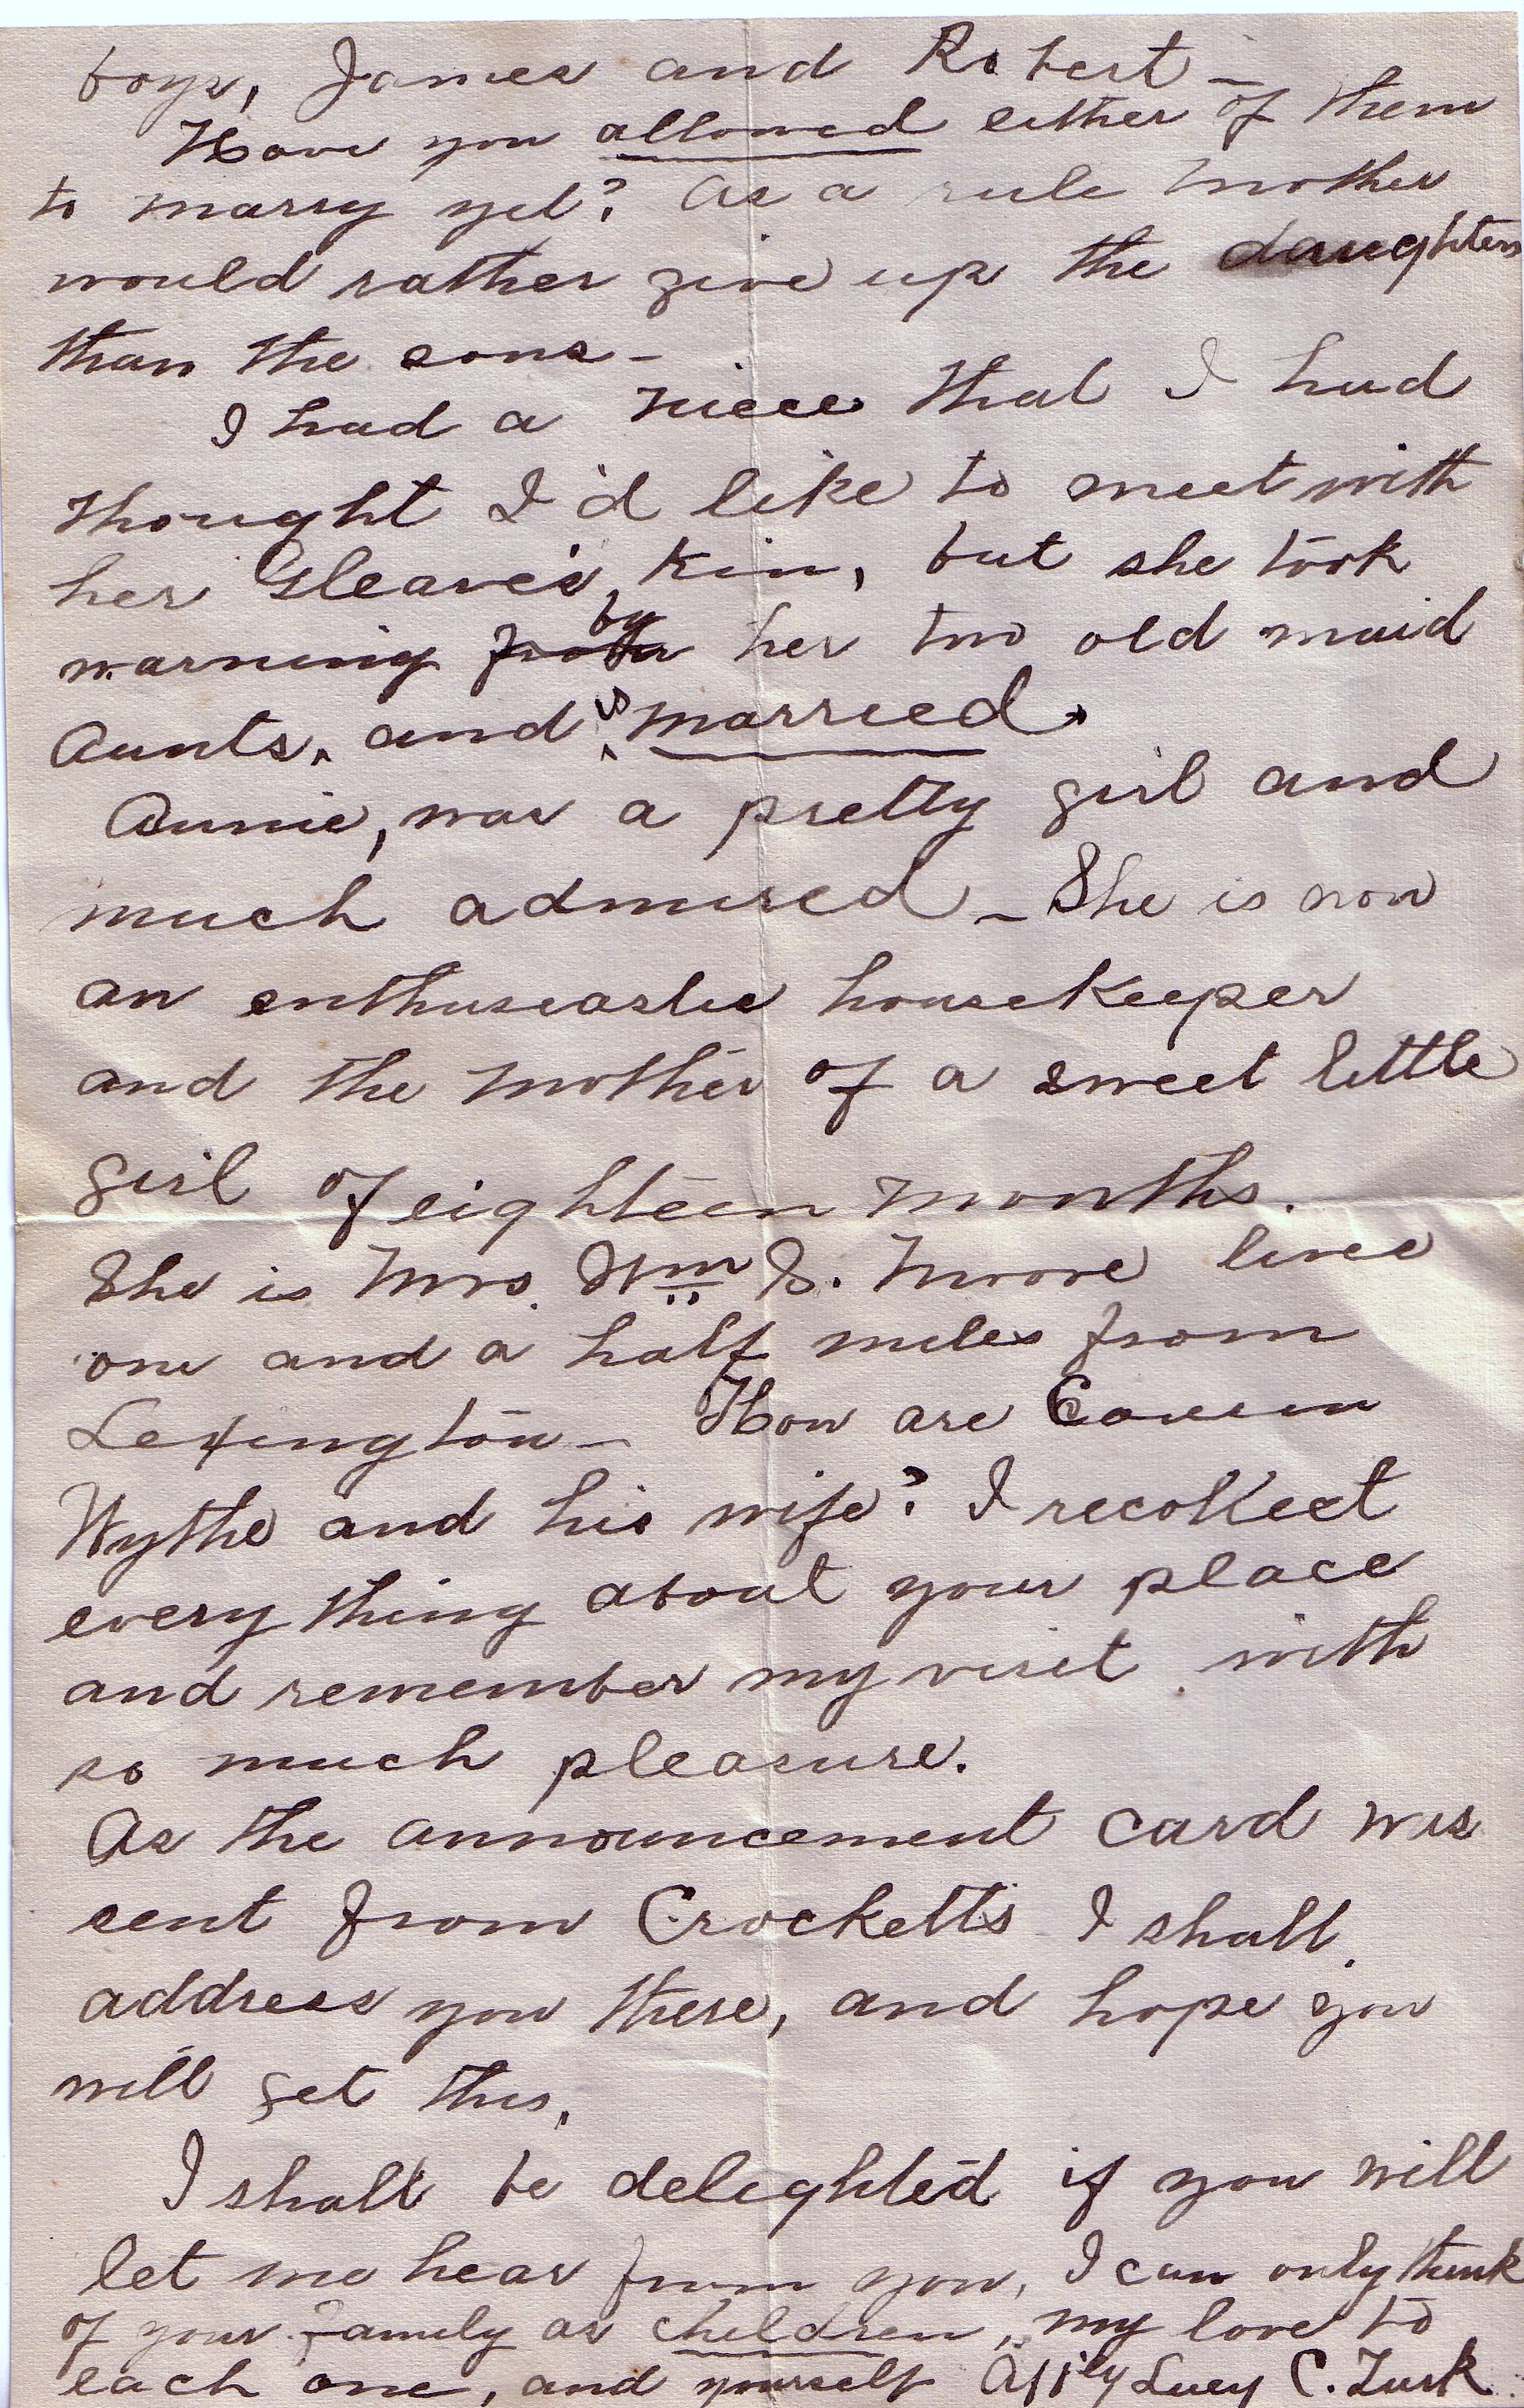 boys, James and Robert –
Have you allowed either of them
to marry yet? As a rule mother
would rather give up the daughters
than the sons –
I had a niece that I had
thought I'd like to meet with
her Cleaves Kin, but she took
warning by her two old maid
Aunts, and is married.
Annie, was a pretty girl and
much admired – She is now
an enthuseastic housekeeper
and the mother of a sweet little
girl of eighteen months.
She is Mrs. Wm S. Moore live
one and a half miles from
Lexington – How are Cousin
Wythe and his wife? I recollect
every thing about your place
and remember my visit with
so much pleasure.
As the announcement card was
sent from Crocketts I shall
address you there, and hope you
will get this.
I shall be delighted if you will
let me hear from you, I can only think
of your family as children, my love to
each one, and yourself Aff'ly Lucy C. Turk